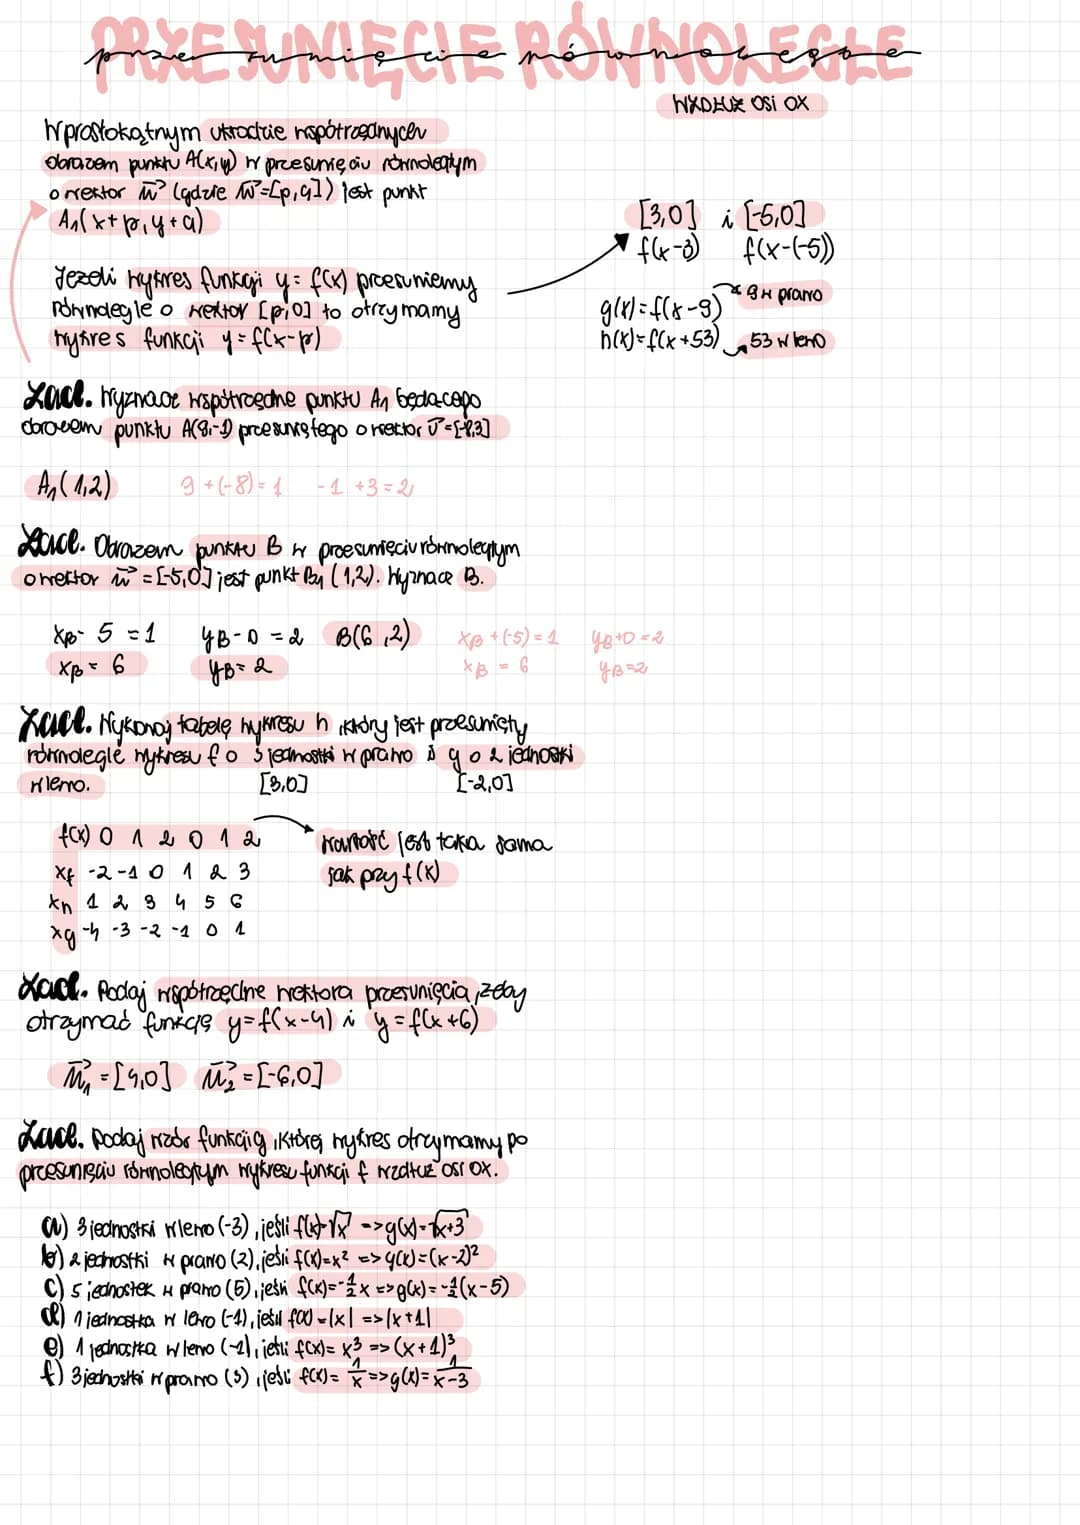 PRZESUNIĘCIE RÓWNOLEGŁE
przesunięcie równoległe
WZDŁUŻ OSI OX
W prostokątnym układzie współrzędnych
obrazem punktu A(x,y) w przesunięciu równoległym
o wektor w⃗ (gdzie w⃗=[p,q]) jest punkt
A₁(x+p, y+q)
Jeżeli wykres funkcji y= f(x) przesuniemy
równolegle o wektor [p,0] to otrzymamy
wykres funkcji y=f(x-p)
[3,0] i [-5,0]
f(x-3) f(x-(-5))
g(x)=f(x-9) 9 w prawo
h(x)=f(x+53) 53 w lewo
Zad. Wyznacz współrzędne punktu A₁ będącego
obrazem punktu A(9,-1) przesuniętego o wektor v⃗=[-8,3]
A₁(1,2) 9+(-8)=1 -1+3=2
Zad. Obrazem punktu B w przesunięciu równoległym
o wektor w⃗=[-5,0] jest punkt B₁(1,2). Wyznacz B.
xB- 5 =1 yB-0 =2 B(6,2) xB+(-5)=1 yB+0=2
xB= 6 yB= 2 xB = 6 yB=2
Zad. Wykonaj tabelę wykresu h, który jest przesunięty
równolegle wykresu f o 3 jednostki w prawo i g o 2 jednostki
w lewo. [3,0] [-2,0]
f(x) 0 1 2 0 1 2 wartość jest taka sama
xf -2 -1 0 1 2 3 jak przy f(x)
xh 1 2 3 4 5 6
xg -4 -3 -2 -1 0 1
Zad. Podaj współrzędne wektora przesunięcia, żeby
otrzymać funkcję y=f(x-4) i y=f(x+6)
u⃗₁=[4,0] u⃗₂=[-6,0]
Zad. Podaj wzór funkcji g, której wykres otrzymamy po
przesunięciu równoległym wykresu funkcji f wzdłuż osi OX.
a) 3 jednostki w lewo (-3), jeśli f(x)=√x => g(x)=√x+3
b) 2 jednostki w prawo (2), jeśli f(x)=x² => g(x)=(x-2)²
c) 5 jednostek w prawo (5), jeśli f(x)=-½x => g(x)=-½(x-5)
d) 1 jednostka w lewo (-1), jeśli f(x)=|x| => |x+1|
e) 1 jednostka w lewo (-1), jeśli f(x)= x³ => (x+1)³
f) 3 jednostki w prawo (3), jeśli f(x)= 1/x => g(x)= 1/x-3